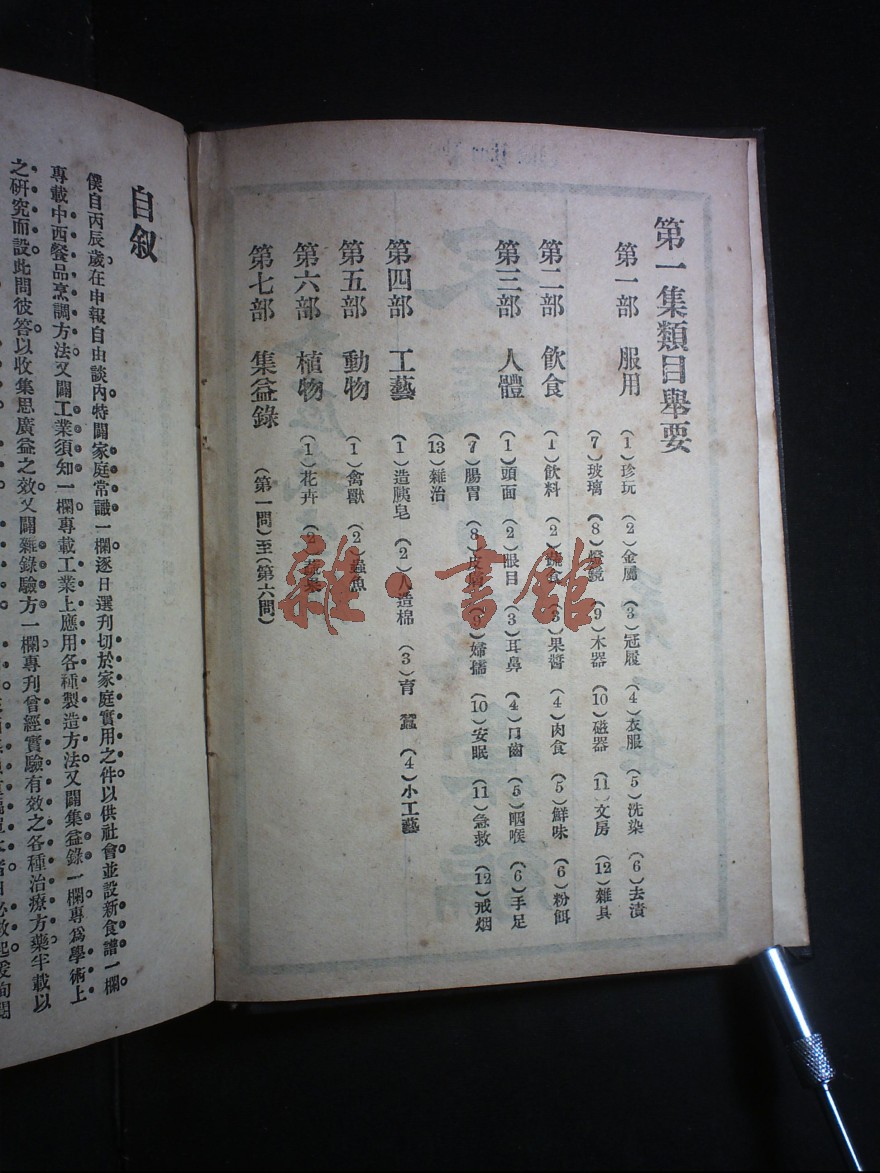 第一集類目舉要
第一部 服用 (1)珍玩 (2)金屬 (3)冠履 (4)衣服 (5)洗染 (6)去漬
(7)玻璃 (8)燈鏡 (9)木器 (10)磁器 (11)文房 (12)雜具
第二部 飲食 (1)飲料 (2)蔬食 (3)果醬 (4)肉食 (5)鮮味 (6)粉餌
第三部 人體 (1)頭面 (2)眼目 (3)耳鼻 (4)口齒 (5)咽喉 (6)手足
(7)腸胃 (8)皮膚 (9)婦孺 (10)安眠 (11)急救 (12)戒烟
(13)雜治
第四部 工藝 (1)造胰皂 (2)人造棉 (3)育蠶 (4)小工藝
第五部 動物 (1)禽獸 (2)蟲魚
第六部 植物 (1)花卉 (2)蔬果
第七部 集益錄 (第一問)至(第六問)
雜·書館
自叙
僕自丙辰歲在申報自由談內特闢家庭常識一欄逐日選刊切於家庭實用之件以供社會並設新食譜一欄
專載中西餐品烹調方法又闢工業須知一欄專載工業上應用各種製造方法又闢集益錄一欄專爲學術上
之研究而設此問彼答以收集思廣益之效又闢雜錄驗方一欄專刊曾經實驗有效之各種治療方藥半載以